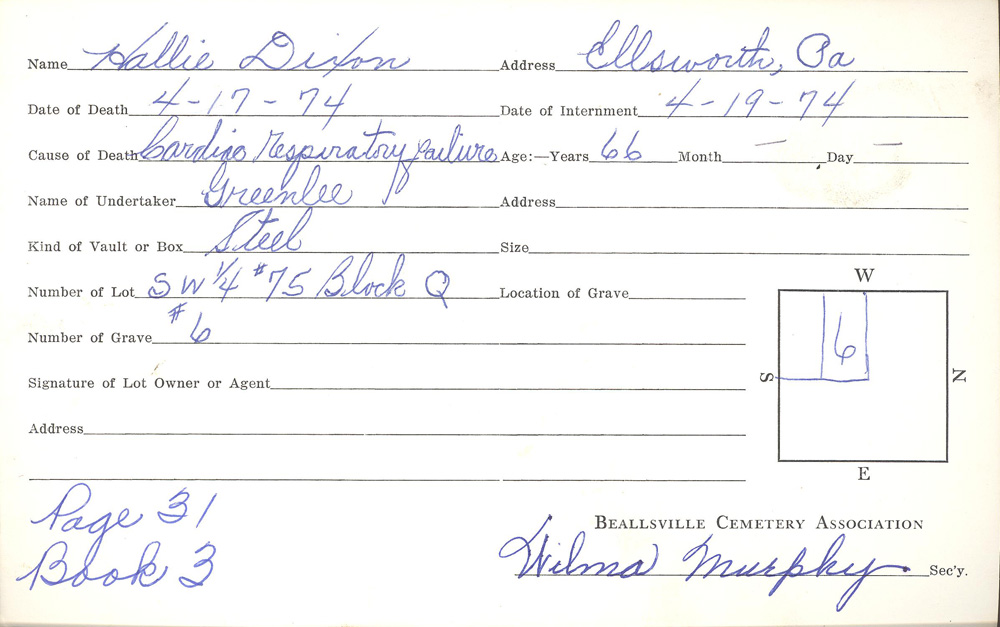 Name Hallie Dixon Address Ellsworth, Pa
Date of Death 4-17-74 Date of Internment 4-19-74
Cause of Death Cardiac Respiratory failure Age:—Years 66 Month — Day —
Name of Undertaker Greenlee Address
Kind of Vault or Box Steel Size
Number of Lot SW 1/4 #75 Block Q Location of Grave
Number of Grave #6
Signature of Lot Owner or Agent
Address
W
S 6 N
E
Page 31
Book 3
BEALLSVILLE CEMETERY ASSOCIATION
Wilma Murphy Sec'y.